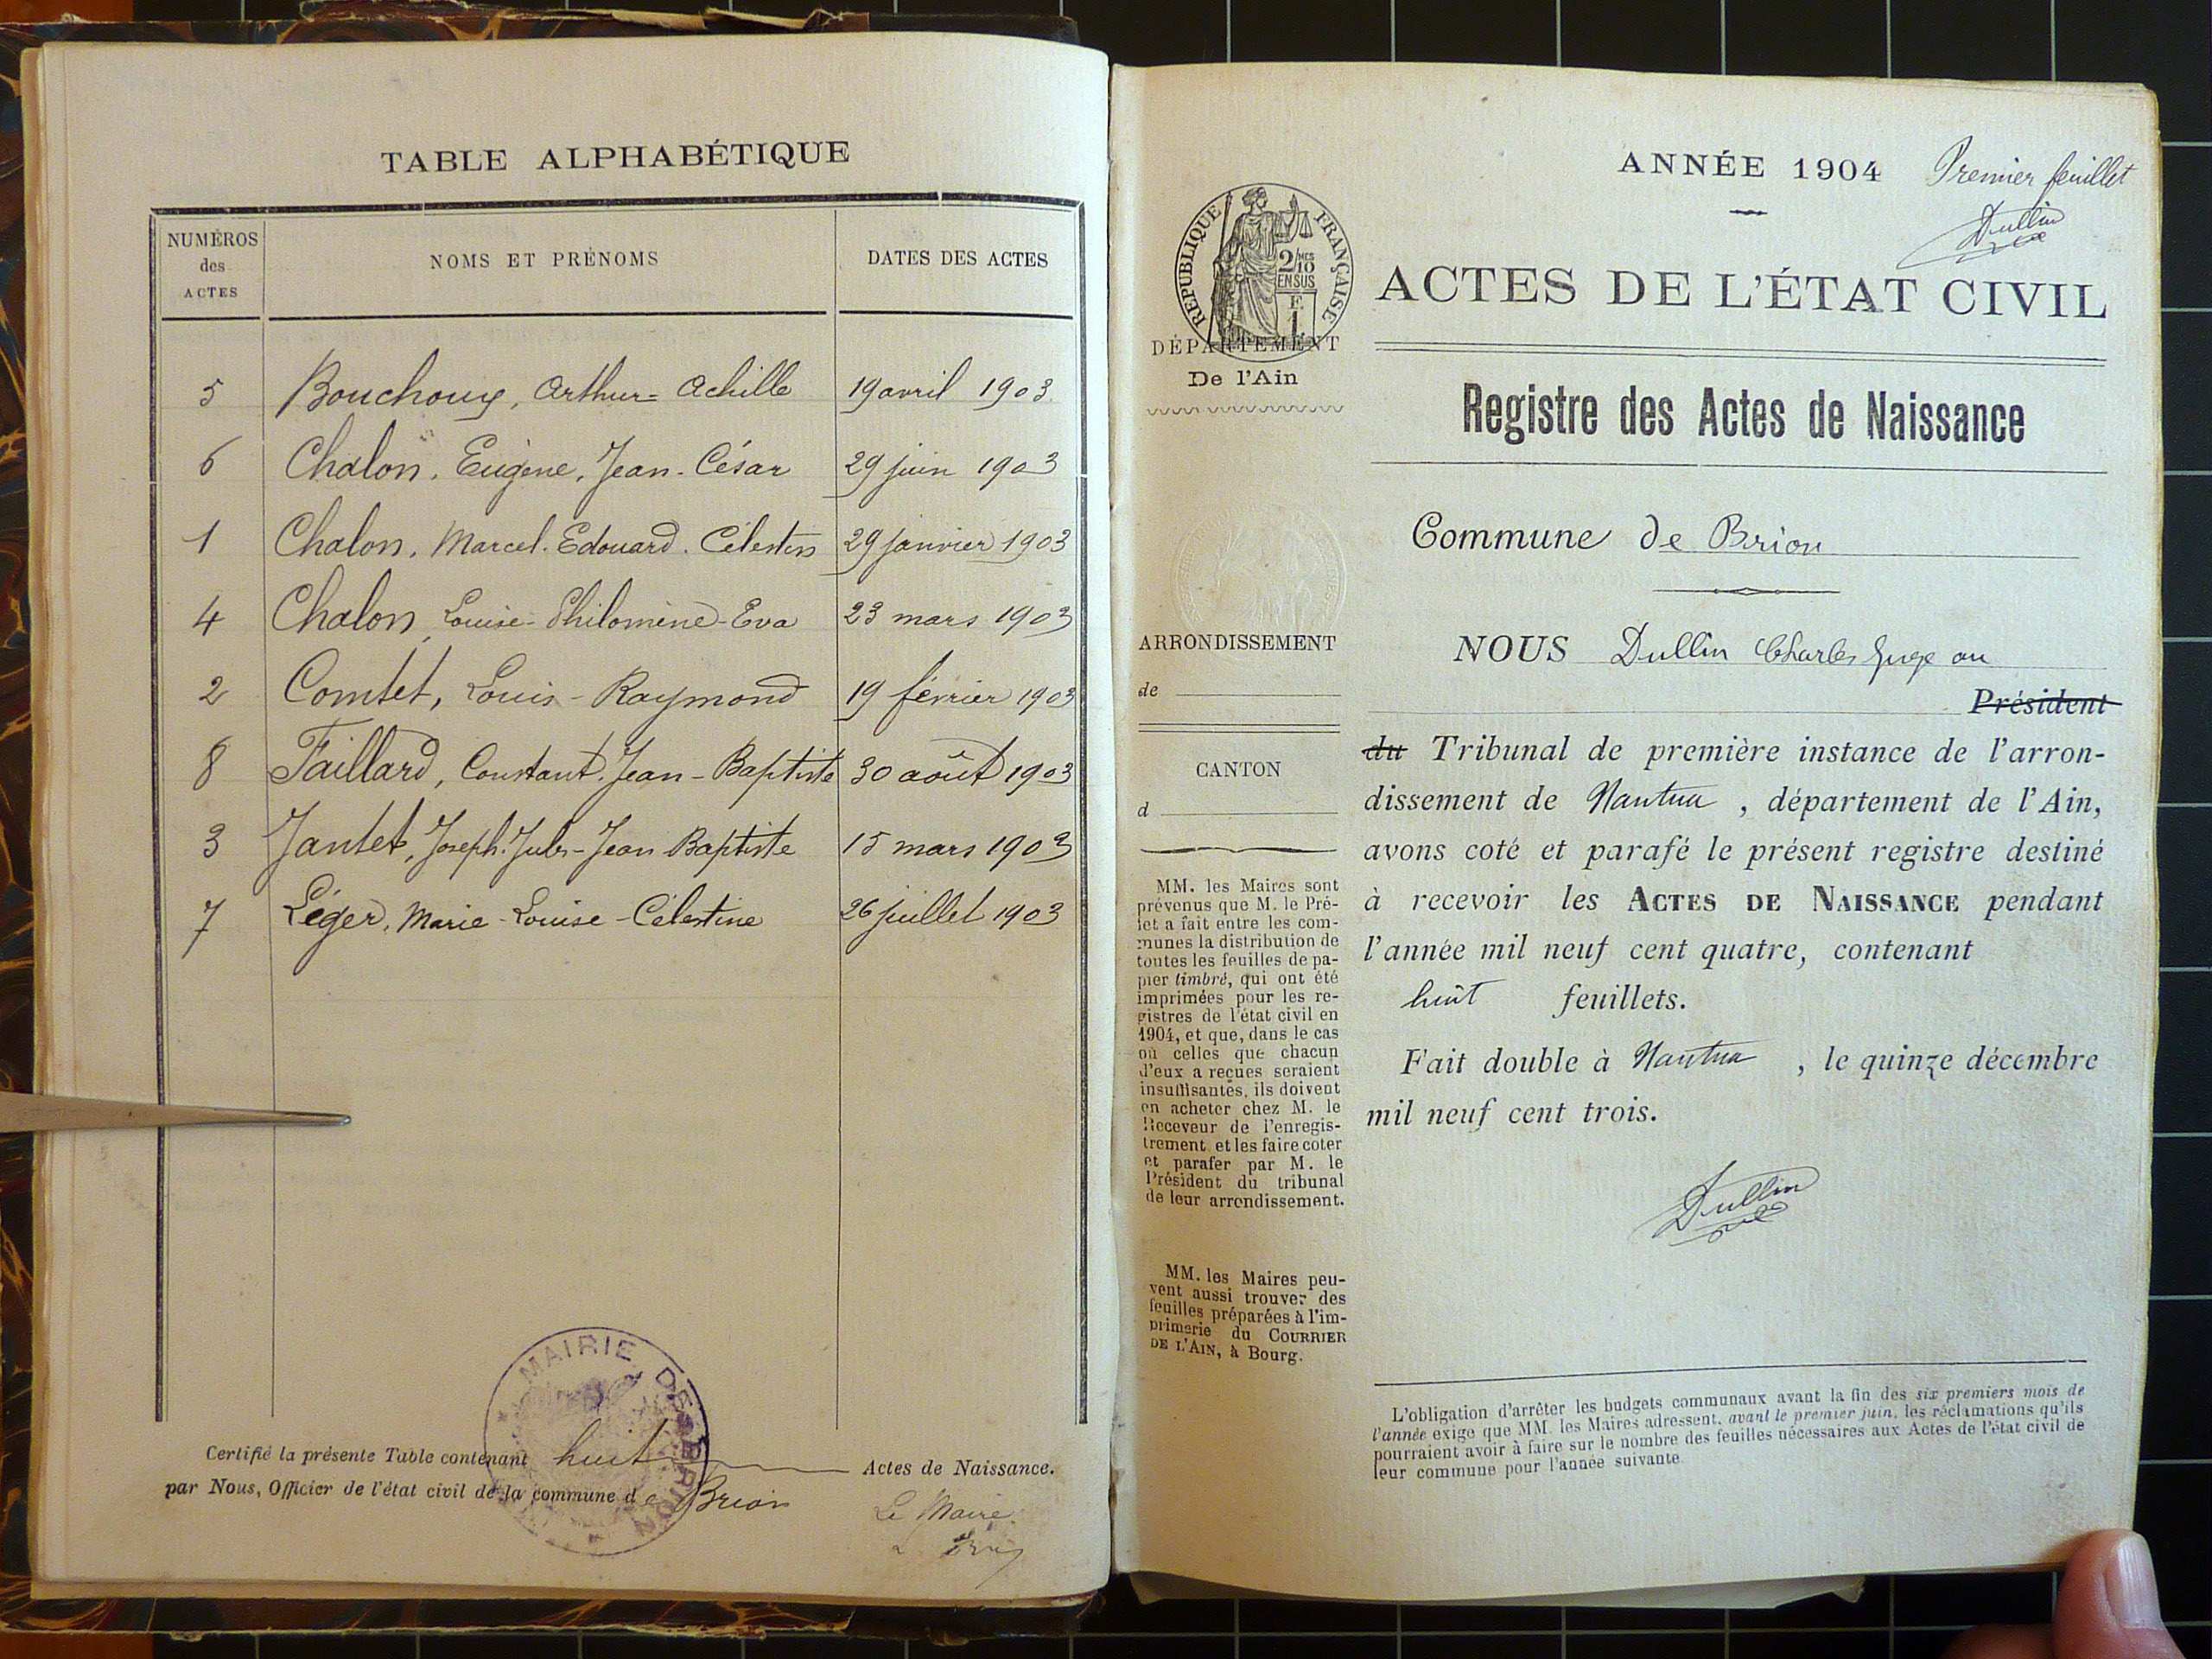 TABLE ALPHABÉTIQUE
NUMÉROS des ACTES
NOMS ET PRÉNOMS
DATES DES ACTES
5 Bouchoux, Arthur=Achille 19 avril 1903
6 Chalon, Eugène, Jean-César 29 juin 1903
1 Chalon, Marcel-Edouard-Célestin 29 janvier 1903
4 Chalon, Louise-Philomène-Eva 23 mars 1903
2 Comtet, Louis-Raymond 19 février 1903
8 Faillard, Constant, Jean-Baptiste 30 août 1903
3 Jantet, Joseph-Jules-Jean Baptiste 15 mars 1903
7 Léger, Marie-Louise-Célestine 26 juillet 1903
MAIRIE DE BRION
Certifié la présente Table contenant huit Actes de Naissance.
par Nous, Officier de l'état civil de la commune de Brion
Le Maire
ANNÉE 1904
Premier feuillet
Dullin
RÉPUBLIQUE FRANÇAISE
2/10MES
EN SUS
F
1.
ACTES DE L'ÉTAT CIVIL
DÉPARTEMENT
De l'Ain
Registre des Actes de Naissance
Commune de Brion
ARRONDISSEMENT
de
CANTON
d
MM. les Maires sont
prévenus que M. le Pré-
fet a fait entre les com-
munes la distribution de
toutes les feuilles de pa-
pier timbré, qui ont été
imprimées pour les re-
gistres de l'état civil en
1904, et que, dans le cas
où celles que chacun
d'eux a reçues seraient
insuffisantes, ils doivent
en acheter chez M. le
Receveur de l'enregis-
trement et les faire coter
et parafer par M. le
Président du tribunal
de leur arrondissement.
MM. les Maires peu-
vent aussi trouver des
feuilles préparées à l'im-
primerie du COURRIER
DE L'AIN, à Bourg.
NOUS Dullin Charles Juge au
Président
du Tribunal de première instance de l'arron-
dissement de Nantua, département de l'Ain,
avons coté et parafé le présent registre destiné
à recevoir les ACTES DE NAISSANCE pendant
l'année mil neuf cent quatre, contenant
huit feuillets.
Fait double à Nantua, le quinze décembre
mil neuf cent trois.
Dullin
L'obligation d'arrêter les budgets communaux avant la fin des six premiers mois de
l'année exige que MM. les Maires adressent, avant le premier juin, les réclamations qu'ils
pourraient avoir à faire sur le nombre des feuilles nécessaires aux Actes de l'état civil de
leur commune pour l'année suivante.